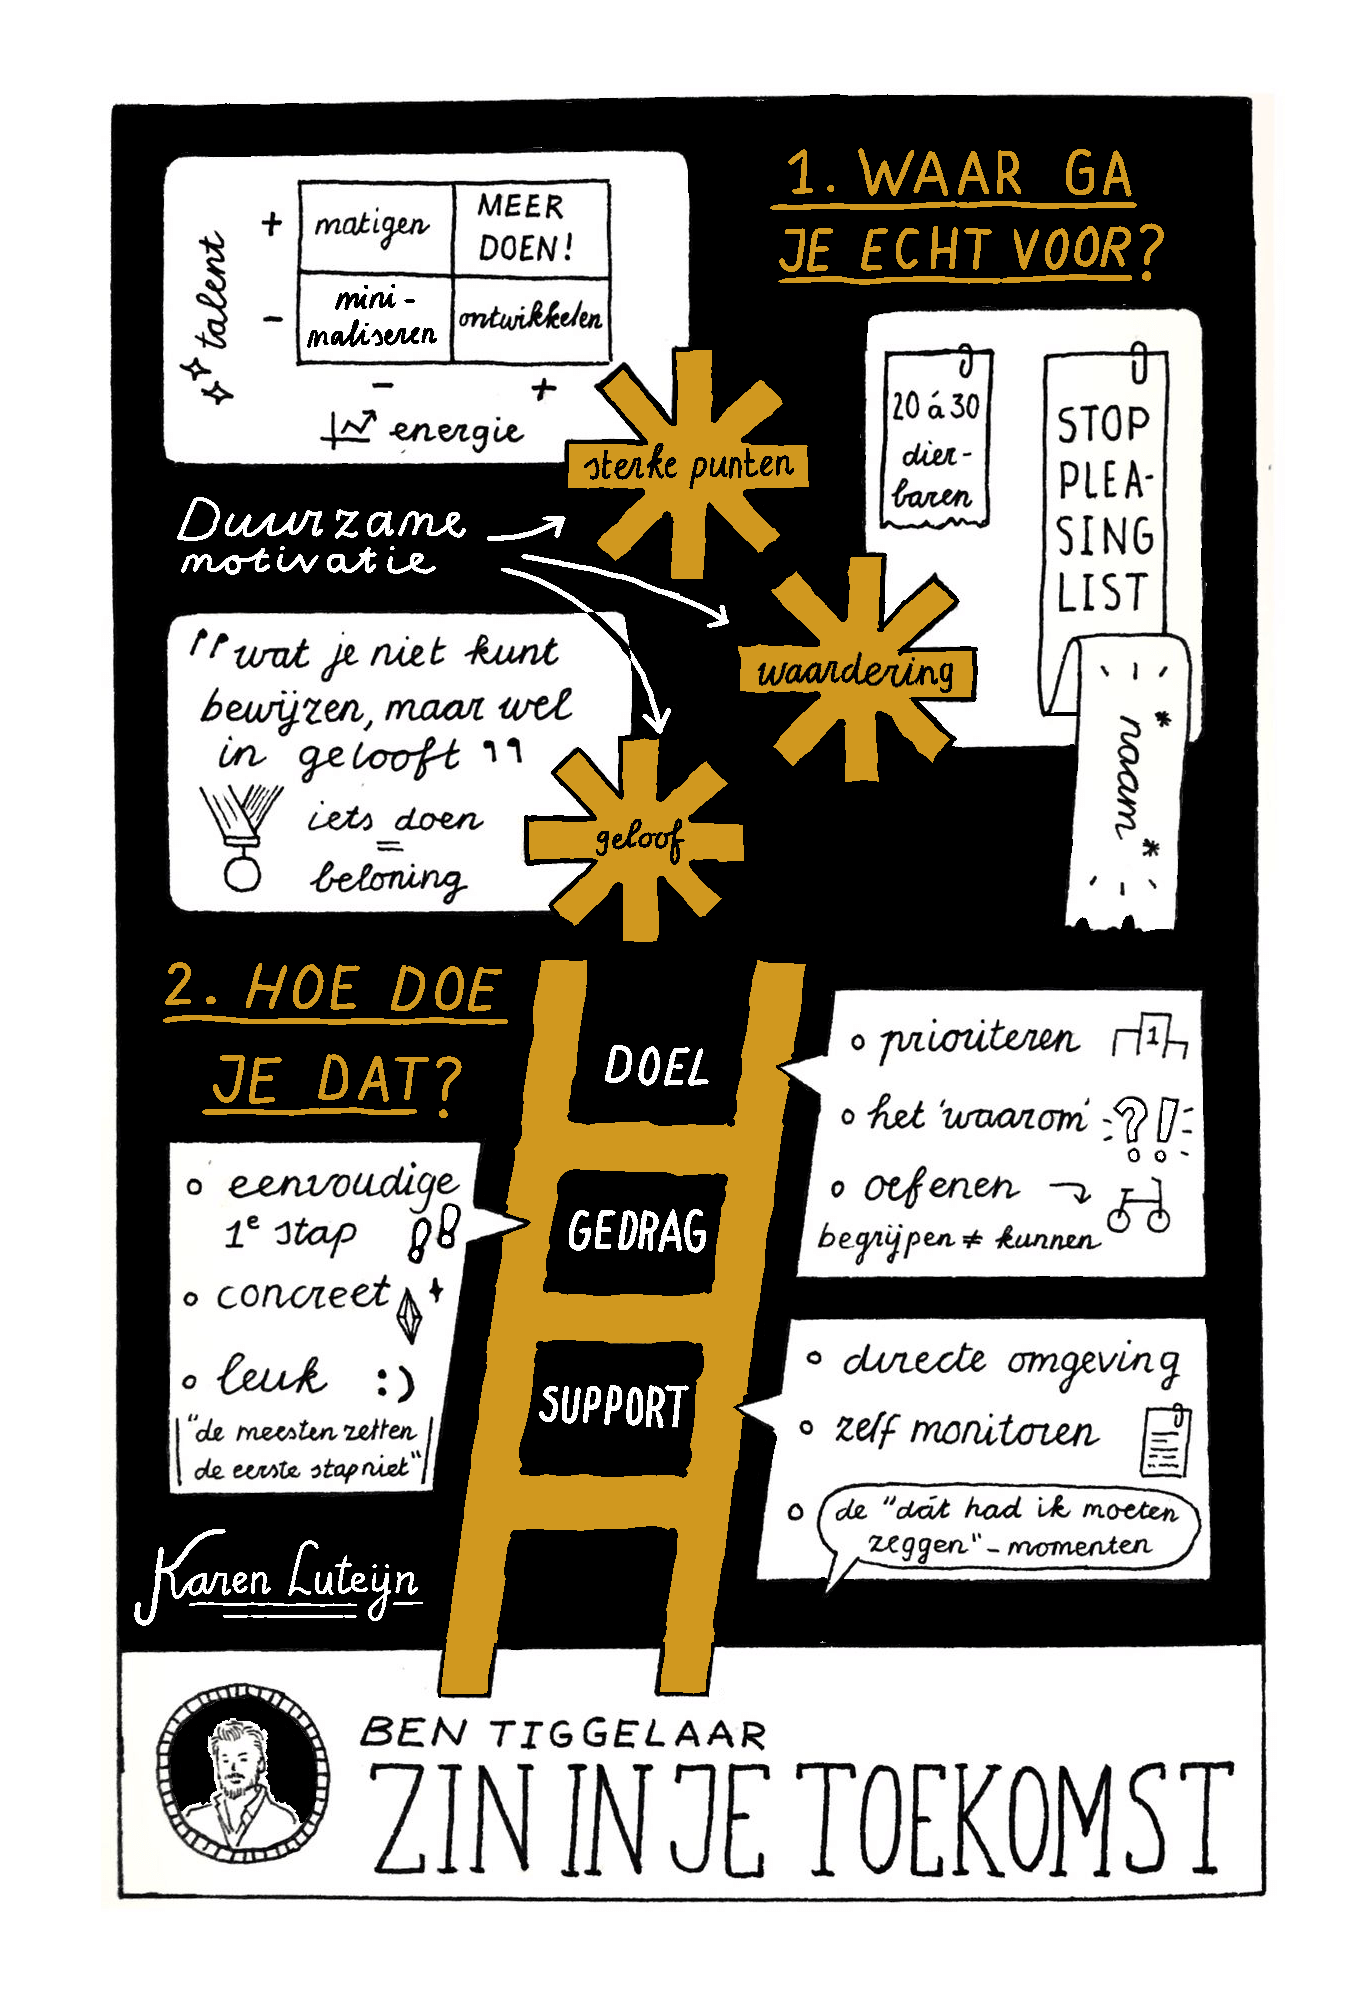 1. WAAR GA
JE ECHT VOOR?
talent
+
-
matigen
MEER
DOEN!
mini-
maliseren
ontwikkelen
- +
energie
sterke punten
20 á 30
dier-
baren
STOP
PLEA-
SING
LIST
* naam *
Duurzame
motivatie
waardering
"wat je niet kunt
bewijzen, maar wel
in gelooft"
iets doen
=
beloning
geloof
2. HOE DOE
JE DAT?
DOEL
o prioriteren 1
o het 'waarom' ?!
o oefenen
begrijpen ≠ kunnen
GEDRAG
o eenvoudige
1e stap
o concreet
o leuk :)
"de meesten zetten
de eerste stap niet"
SUPPORT
o directe omgeving
o zelf monitoren
o de "dát had ik moeten
zeggen" - momenten
Karen Luteijn
BEN TIGGELAAR
ZIN IN JE TOEKOMST